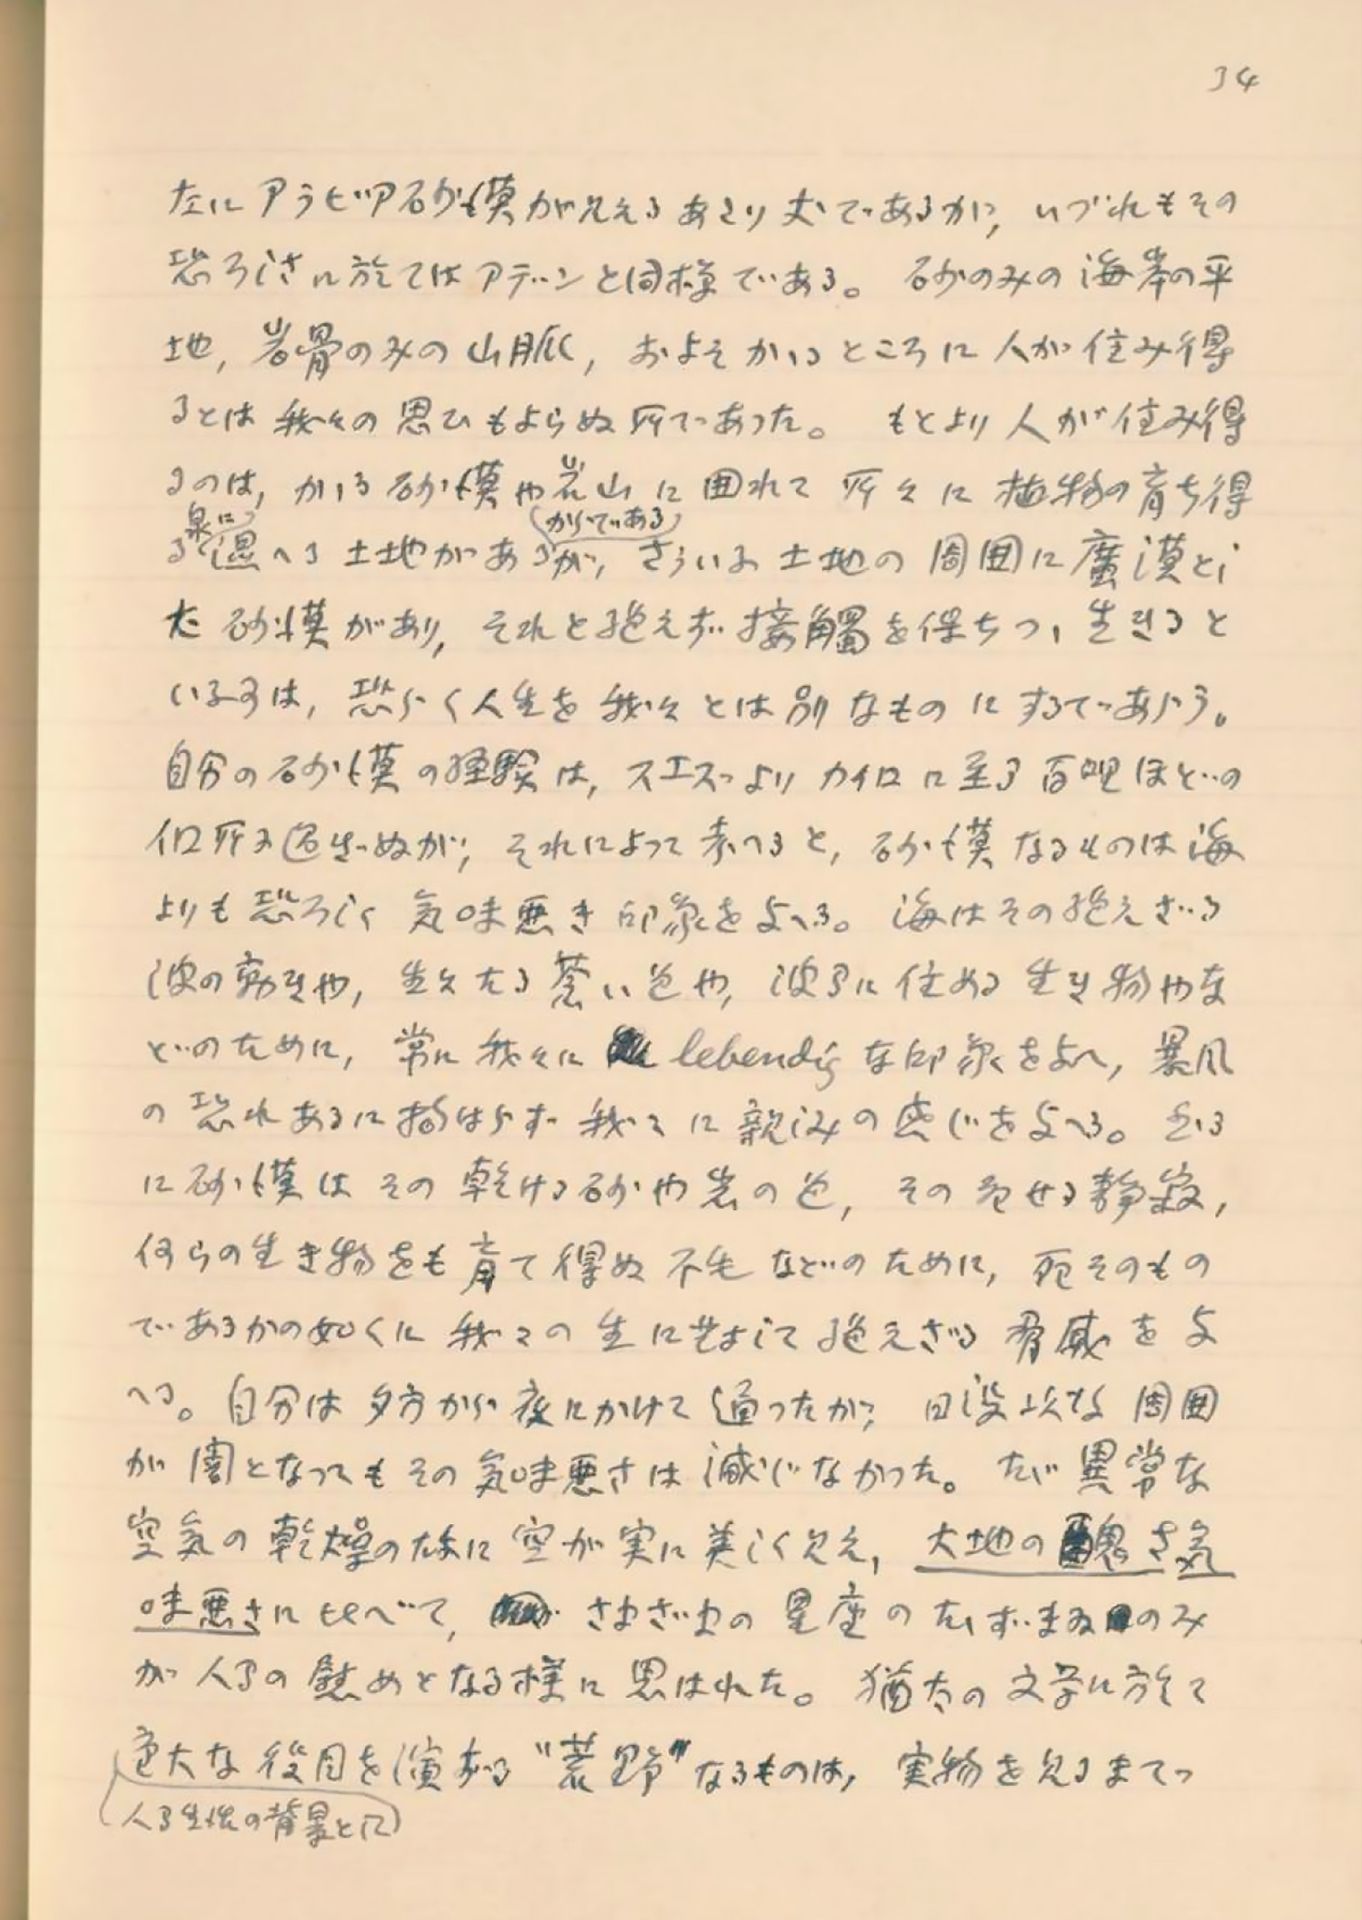 34
左にアラビア砂漠が見えるあたり丈であるが,いづれもその
恐ろしさに於てはアデンと同様である。砂のみの海岸の平
地,岩骨のみの山脈,およそかゝるところに人が住み得
るとは我々の思ひもよらぬ所であった。もとより人が住み得
るのは,かゝる砂漠や岩山に囲れて所々に植物の育ち得
泉に(からである)
る 遇へる土地があるが,さういふ土地の周囲に廣漠とし
た砂漠があり,それと絶えず接觸を保ちつゝ生きると
いふ事は,恐らく人生を我々とは別なものにするであらう。
自分の砂漠の経験は,スエズよりカイロに至る百哩ほどの
個所に過ぎぬが,それによって考へると,砂漠なるものは海
よりも恐ろしく気味悪き印象を与へる。海はその絶えざる
波の動きや,生々たる蒼い色や,波間に住める生き物やな
どのために,常に我々に lebendig な印象を与へ,暴風
の恐れあるに拘はらず我々に親しみの感じを与へる。然る
に砂漠はその乾ける砂や岩の色,その死せる静寂,
何らの生き物をも育て得ぬ不毛などのために,死そのもの
であるかの如くに我々の生に対して絶えざる脅威を与
へる。自分は夕方から夜にかけて通ったが,日没以後周囲
が闇となってもその気味悪さは減じなかった。たゞ異常な
空気の乾燥の故に空が実に美しく見え,大地の醜さ気
味悪さに比べて,さまざまの星座のたゝずまゐのみ
が人間の慰めとなる様に思はれた。猶太の文学に於て
重大な役目を演ずる"荒野"なるものは,実物を見るまで
(人間生活の背景として)